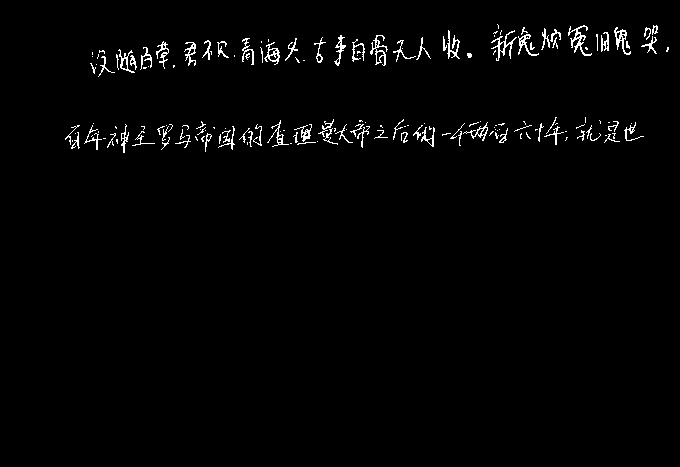 没随百草,君不见,青海头,古来白骨无人收。新鬼烦冤旧鬼哭,
百年神圣罗马帝国的查理曼大帝之后的一千两百六十年,就是世